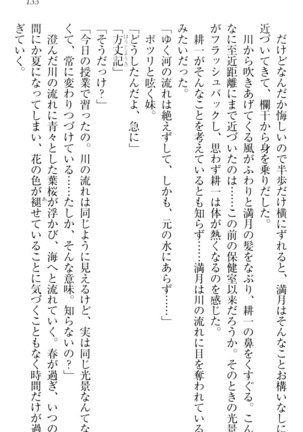 133
だけどなんだか悔しいので半歩だけ横にずれると、満月はそんなことお構いなしに
近づいてきて、欄干から身を乗りだした。
川から吹きあげてくる風がふわりと満月の髪をなぶり、耕一の鼻をくすぐる。こん
なに至近距離にまで近づいたのは……この前の保健室以来だろうか。そのときの光景
がフラッシュバックし、思わず耕一は体が熱くなるのを感じた。
耕一がそんなことを考えているとも知らず……満月は川の流れに目を奪われている
みたいだった。
「ゆく河の流れは絶えずして、しかも、元の水にあらず……」
ポツリと呟く妹。
「どうしたんだよ、急に」
「方丈記」
ほうじょうき
「そうだっけ？」
「今日の授業で習ったの。川の流れは同じように見えるけど、実は同じ光景なんてな
くて、常に変わりつづけている……たしか、そんな意味。知らないの？」
澄んだ川の流れに青々とした葉桜が浮かび、海へと流れていく。春が過ぎ、いつの
間にか夏になってしまい、花の色が褪せていることに気づくこともなく時間だけが過
あ
ぎていく。